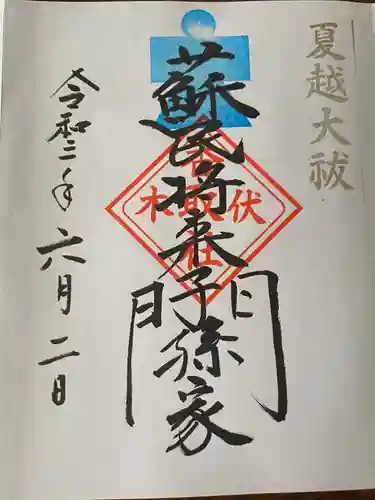 夏越大祓
蘇民将来子孫家門
伏木
香取社
令和二年六月二日